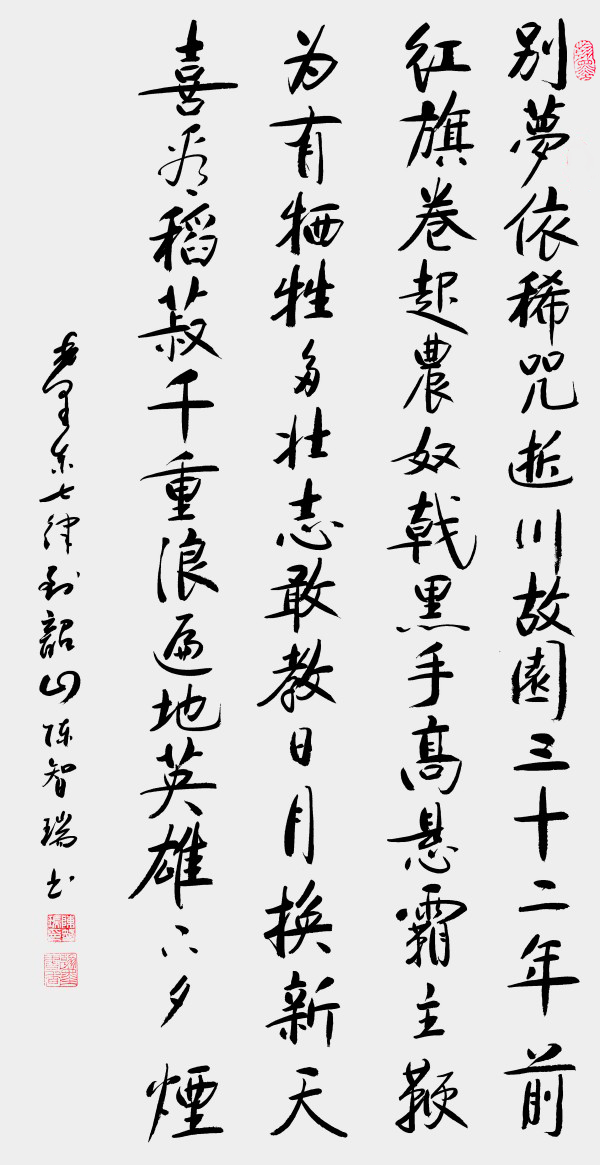 别夢依稀咒逝川故園三十二年前
红旗卷起農奴戟黑手高悬霸主鞭
为有牺牲多壮志敢教日月换新天
喜看稻菽千重浪遍地英雄下夕煙
毛泽东七律到韶山陈智瑞书